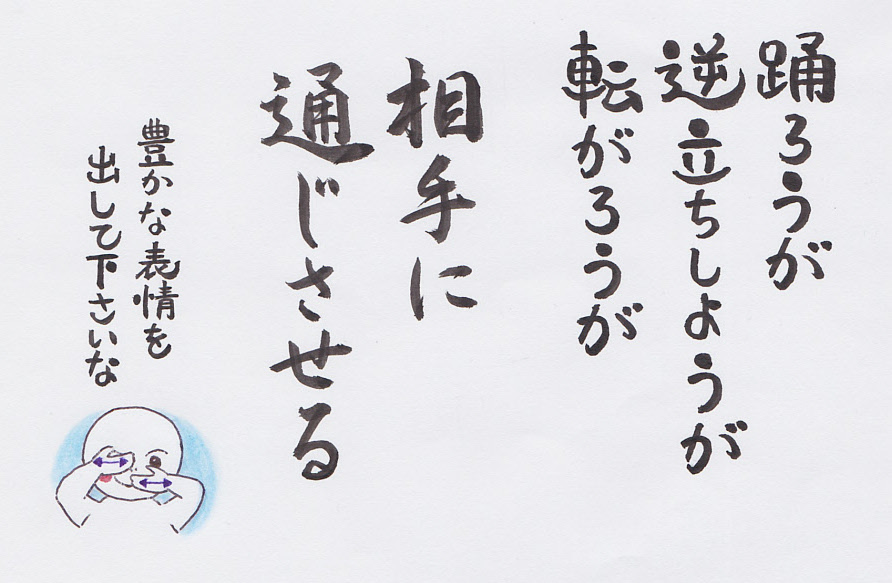 踊ろうが
逆立ちしようが
転がろうが
相手に
通じさせる
豊かな表情を
出して下さいな